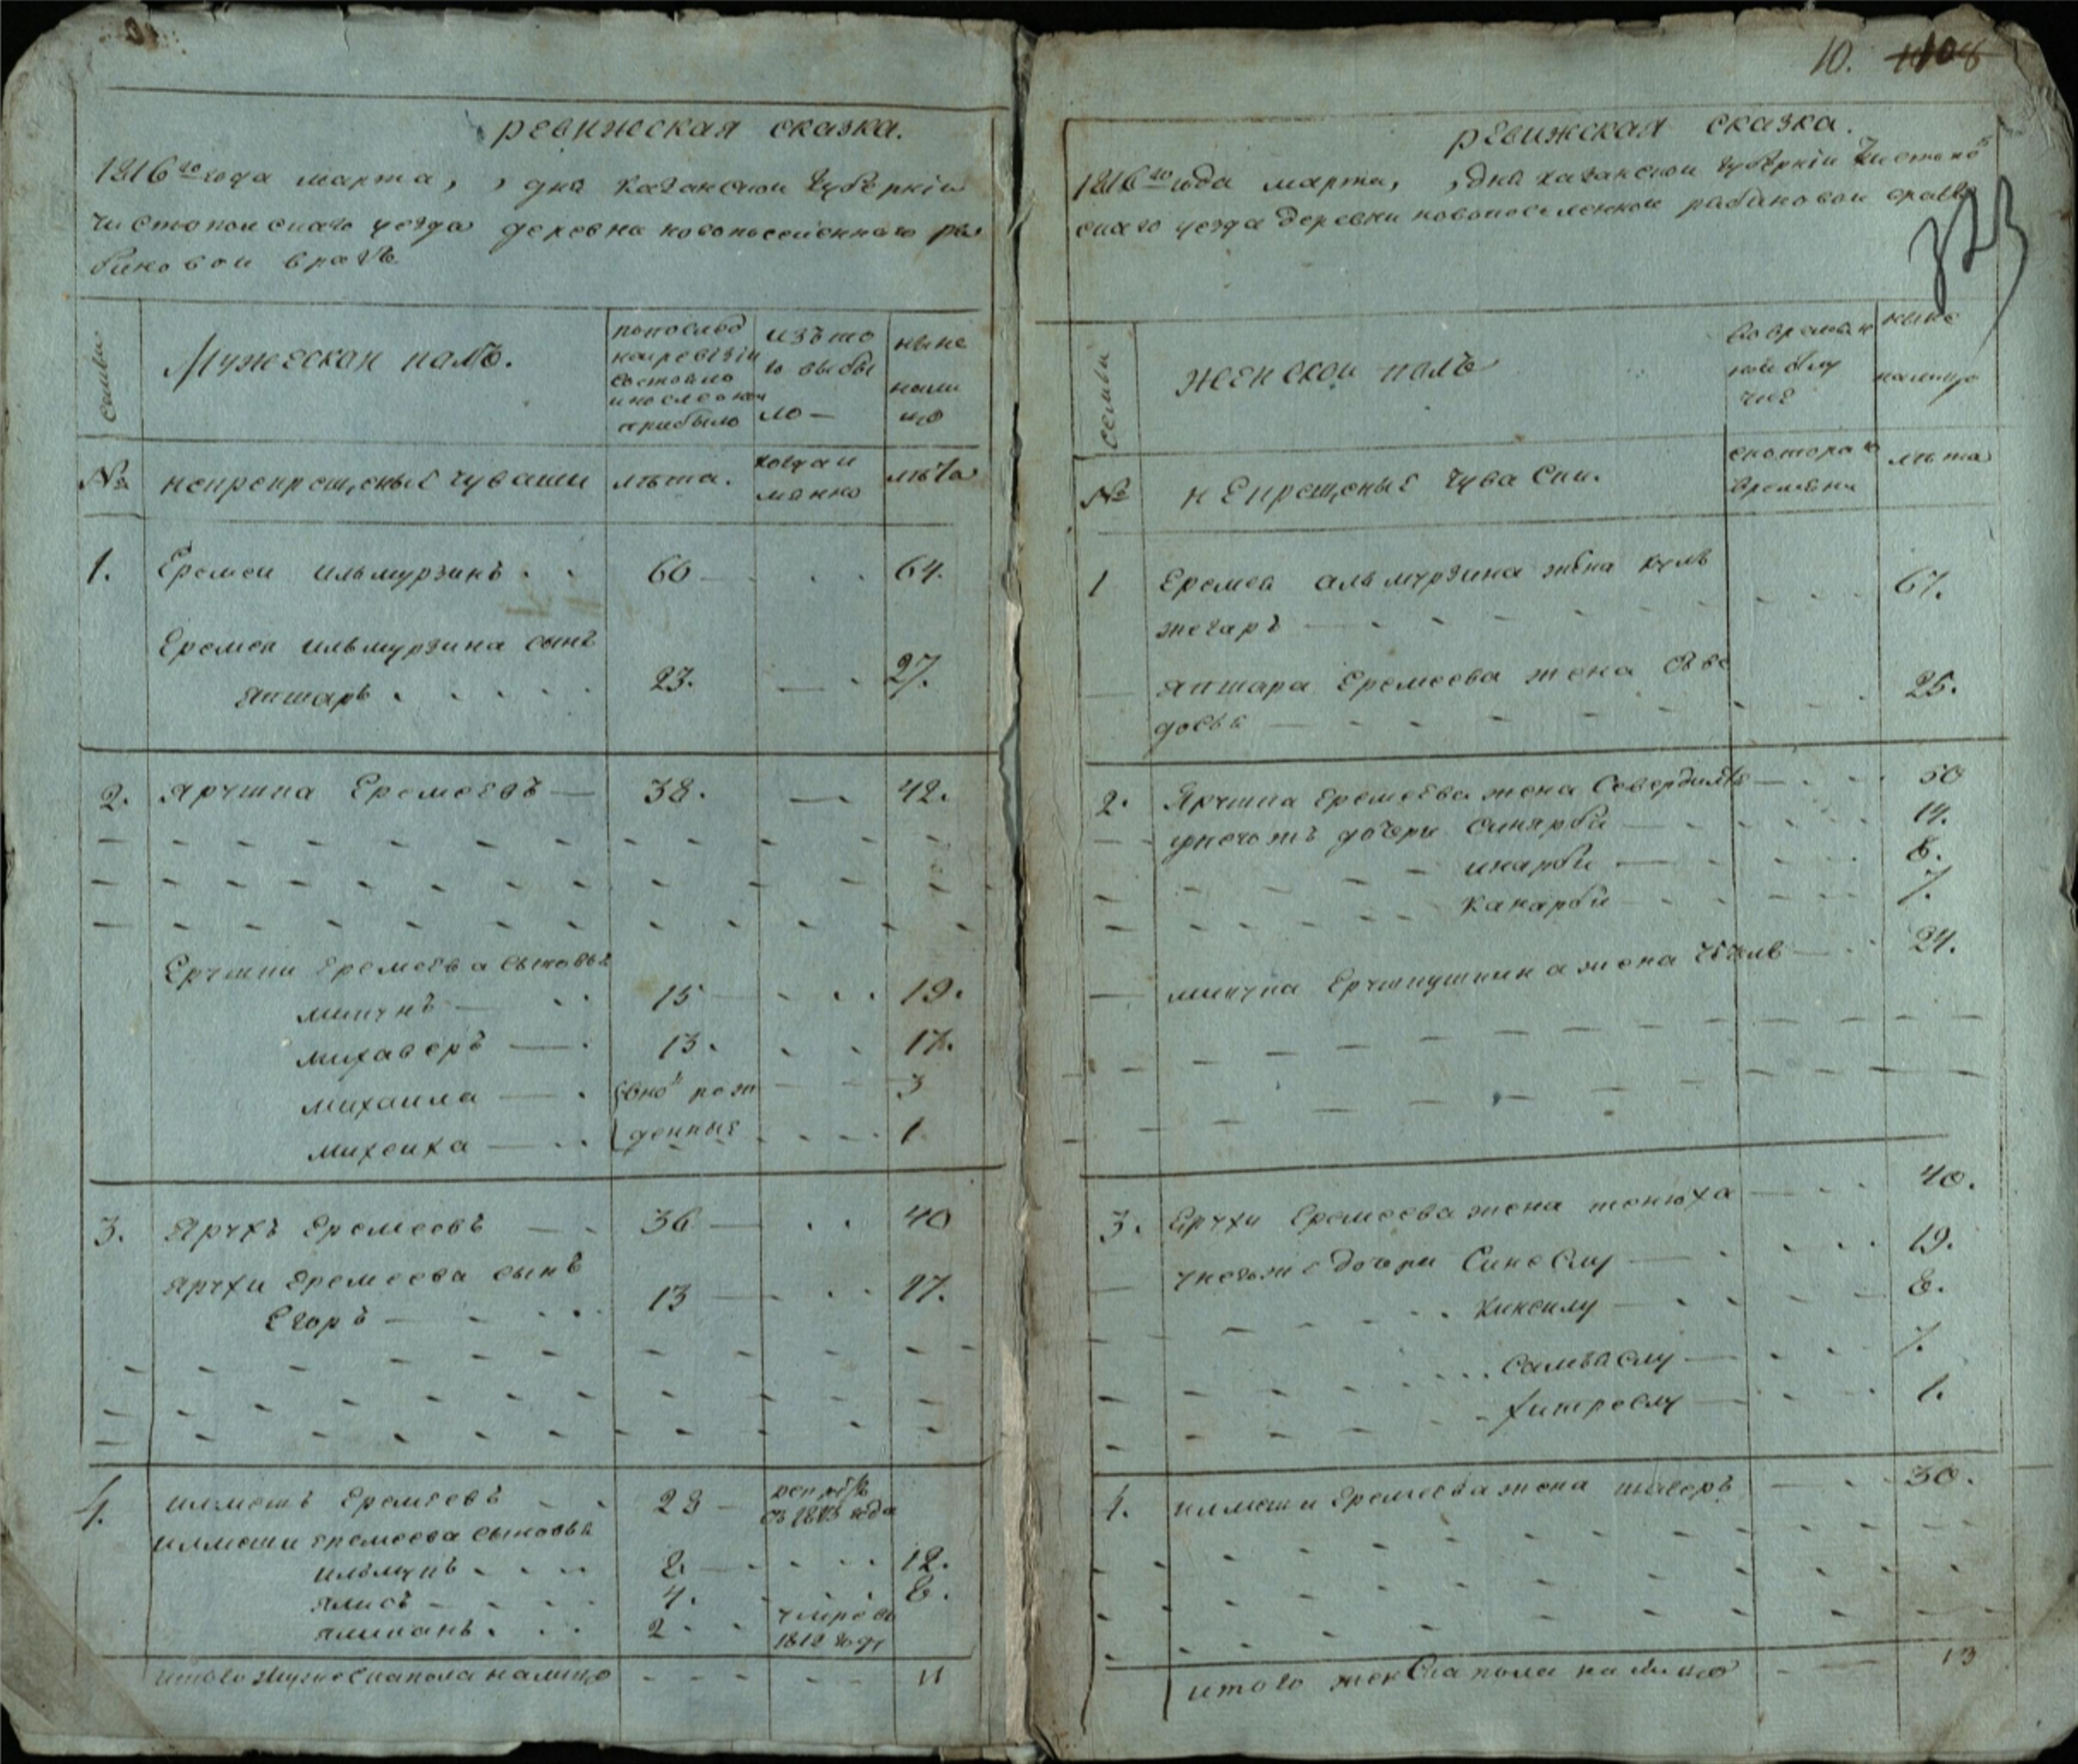 ревижеская сказка.
1816го года марта, , дня казанскои губернiи
чистопольскаго уезда деревна новопоселеннаго ря
биновои врагъ
семьи
Мужескои полъ.
попослед
ней ревизiи
состояло
и после оной
прибыло
изъ то
го выбы
ло —
ныне
нали
цо
№
непрепрещеные чуваши
лъта.
когда и
лъта
1. Еремеи ильмурзинъ . . 60 — . . 64.
Еремея ильмурзина сынъ
япшаръ . . . . . 23. — . 27.
2. Ярчипа Еремеевъ — 38. — 42.
Ерчипи Еремеева сыновья
мипчнъ — . . 15 — . . . 19.
михаверъ — . 13. . . 17.
михаила — . вно рож — 3
михеиха — . . денные . . . . 1.
3. Ярчхъ Еремеевъ — . 36 — . . 40
Ярчхи Еремеева сынъ
Егоръ — . . . . 13 — . . . 17.
4. илмешъ Еремеевъ . . 28 —
года
илмеши Еремеева сыновья
ильмунъ . . . . 8 — . . . . 12.
ялисъ — . . . . 4. . . . 8.
яликанъ . . . 2 . . умре въ
1812 году
итого мужеска пола налицо — — — 11
10. 108
323
ревижская сказка.
1816го года марта, , дня казанскои губернiи чистопо
скаго уезда деревни новопоселеннои рябиновои враг
семьи
женскои полъ
во времен
ной отлу
чке
ныне
налицо
№
непрещеные чуваски.
скотораго
времени
лъта
1 Еремея альмурзина жена куль
жегаръ — . . . . . . . . 67.
— япшара Еремеева жена Овдо
досья — . . . . . . . . 25.
2. Ярчипа Еремеева жена Севердилъ — . . . 50
унегожъ дочери синярби — . . . . . 14.
инарби — . . . . 8.
канарби — . . . . 7.
— мипчна Ерчипушкина жена — . . 24.
3. Ерчхи Еремеева жена тенюха — . . 40.
— унегоже дочери Синеслу — . . . . . 19.
кинсилу — . . . . . 8.
Самъаслу — . . . 7.
хитреслу — . . . . 1.
4. илмеши Еремеева жена шаверъ — . . 30.
итого женска пола на лицо — — 13